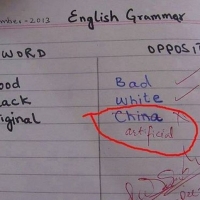 mber-2013 English Grammar
WORD OPPOSIT
ood Bad
ack White
iginal China
artificial